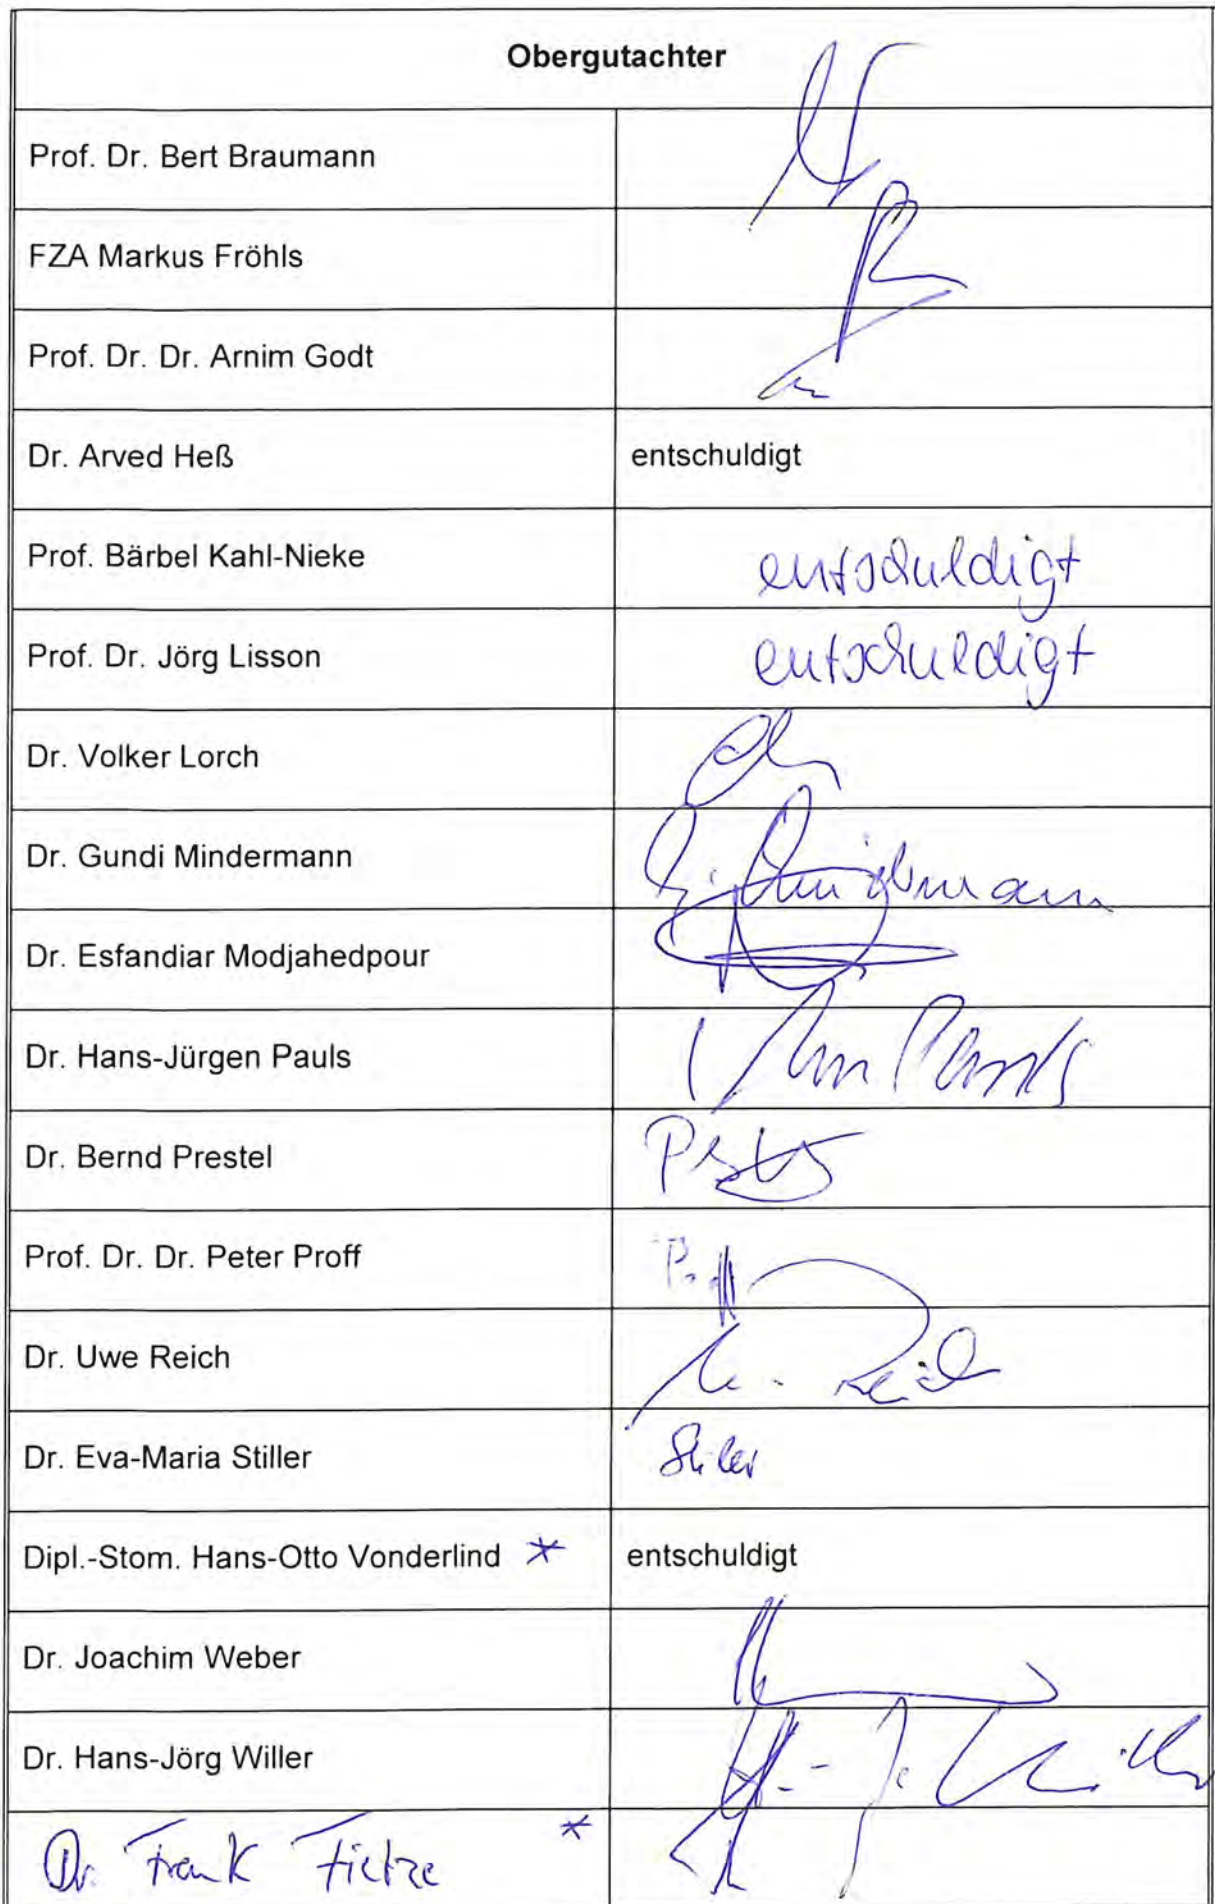 Obergutachter
Prof. Dr. Bert Braumann
FZA Markus Fröhls
Prof. Dr. Dr. Arnim Godt
Dr. Arved Heß entschuldigt
Prof. Bärbel Kahl-Nieke entschuldigt
Prof. Dr. Jörg Lisson entschuldigt
Dr. Volker Lorch
Dr. Gundi Mindermann
Dr. Esfandiar Modjahedpour
Dr. Hans-Jürgen Pauls
Dr. Bernd Prestel
Prof. Dr. Dr. Peter Proff
Dr. Uwe Reich
Dr. Eva-Maria Stiller
Dipl.-Stom. Hans-Otto Vonderlind * entschuldigt
Dr. Joachim Weber
Dr. Hans-Jörg Willer
Dr. Frank Fietze *